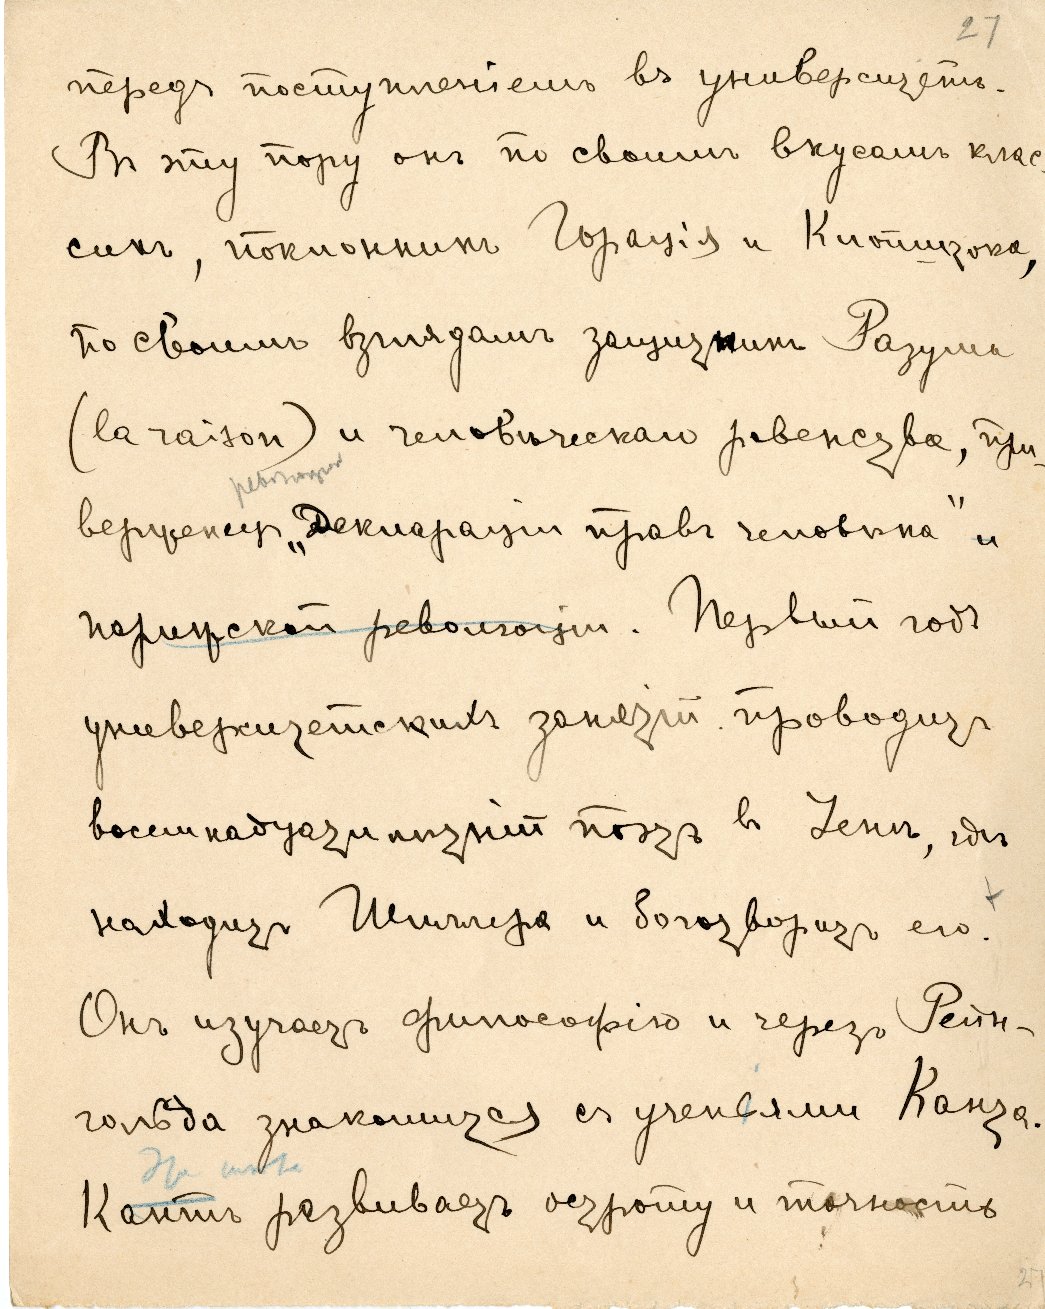 27
передъ поступленіемъ въ университетъ.
Въ эту пору онъ по своимъ вкусамъ клас-
сикъ, поклонникъ Горація и Клопштока,
по своимъ взглядамъ защитникъ Разума
(la raison) и человѣческаго равенства, при-
революціи
верженецъ „Декларація правъ человѣка" и
парижской революціи. Первый годъ
университетскихъ занятій проводитъ
восемнадцатилѣтній поэтъ въ Іенѣ, гдѣ
находитъ Шиллера и боготворитъ его.
Онъ изучаетъ философію и черезъ Рейн-
гольда знакомится съ ученіями Канта.
Кантъ развиваетъ остроту и точность